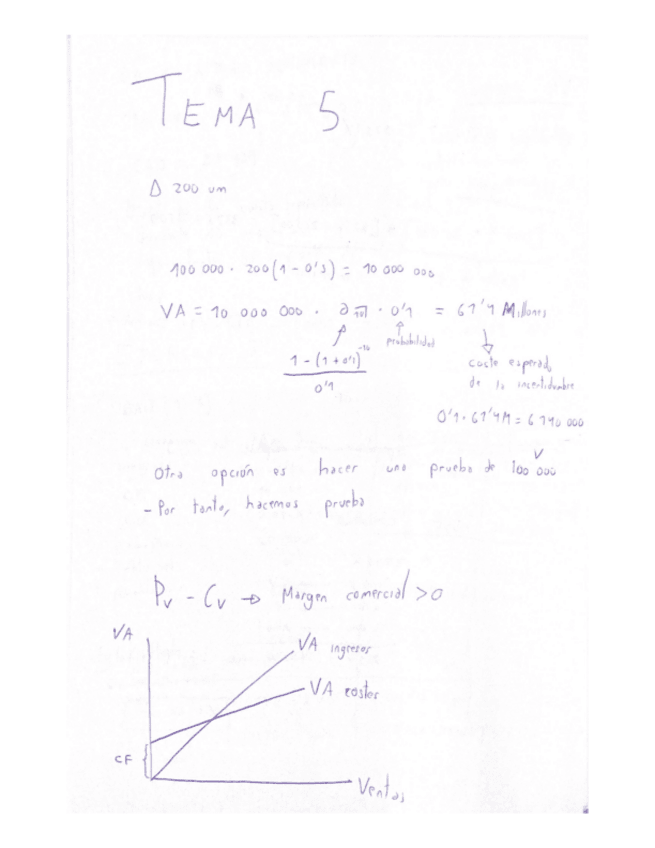 TEMA 5
Δ 200 um
100 000 · 200(1 - 0'5) = 10 000 000
VA = 10 000 000 · a 10┐ · 0'1 = 61'4 Millones
probabilidad
1 - (1 + 0'1)^-10
0'1
coste esperado
de la incertidumbre
0'1 · 61'4M = 6 140 000
V
Otra opción es hacer una prueba de 100 000
- Por tanto, hacemos prueba
Pv - Cv → Margen comercial > 0
VA
VA ingresos
VA costes
CF
Ventas